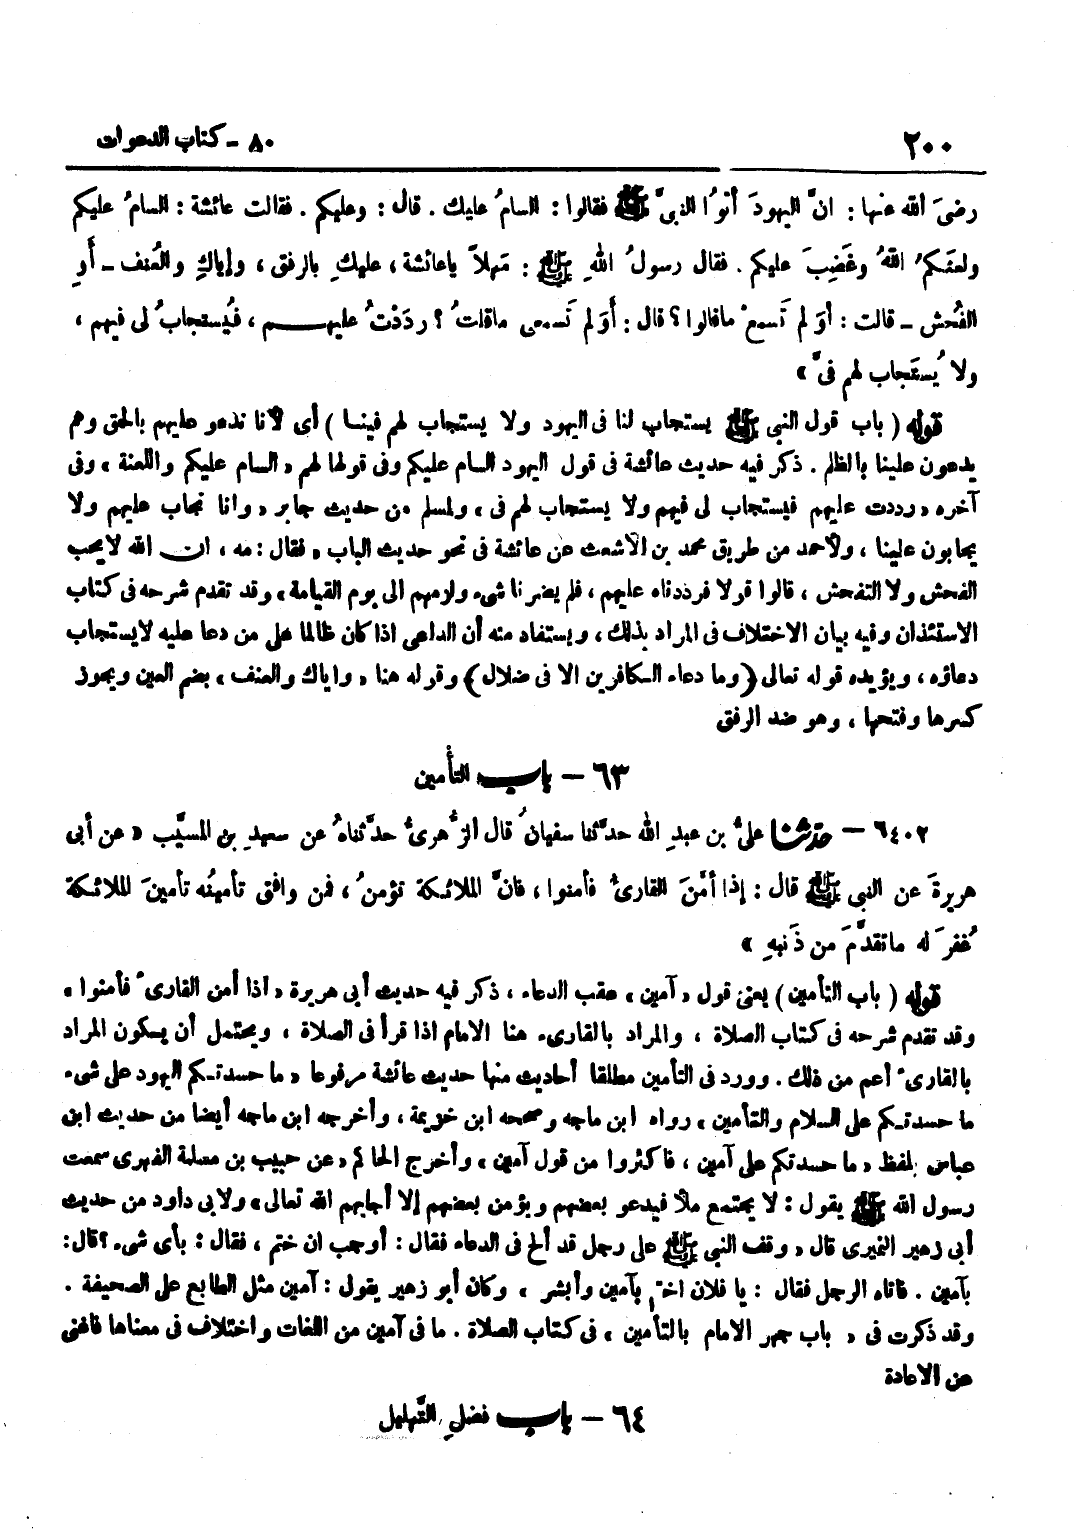 ٢٠٠ ٨٠ - كتاب الدعوات
رضىَ الله عنها : انَّ اليهودَ أتوُا النبىَّ ﷺ فقالوا : السامُ عليك . قال : وعليكم . فقالت عائشة : السامُ عليكم
ولعنكمُ اللهُ وغَضِبَ عليكم . فقال رسولُ اللهِ ﷺ : مَهلاً ياعائشة ، عليكِ بالرفق ، وإياكِ والعُنف - أَوِ
الفُحش - قالت : أوَ لم تَسمعْ ماقالوا ؟ قال : أَوَ لم تَسمعى ماقلتُ ؟ ردَدْتُ عليهم ، فيُستجابُ لى فيهم ،
ولا يُستَجاب لهم فىَّ »
قوله ( باب قول النبى ﷺ يستجاب لنا فى اليهود ولا يستجاب لهم فينا ) أى لأنا ندعو عليهم بالحق وهم
يدعون علينا بالظلم . ذكر فيه حديث عائشة فى قول اليهود السام عليكم وفى قولها لهم « السام عليكم واللعنة » وفى
آخره « رددت عليهم فيستجاب لى فيهم ولا يستجاب لهم فى » ولمسلم من حديث جابر « وانا نجاب عليهم ولا
يجابون علينا » ولأحمد من طريق محمد بن الأشعث عن عائشة فى نحو حديث الباب « فقال : مه ، ان الله لا يحب
الفحش ولا التفحش ، قالوا قولا فرددناه عليهم ، فلم يضرنا شىء ولزمهم الى يوم القيامة » وقد تقدم شرحه فى كتاب
الاستئذان وفيه بيان الاختلاف فى المراد بذلك ، ويستفاد منه أن الداعى اذا كان ظالما على من دعا عليه لا يستجاب
دعاؤه ، ويؤيده قوله تعالى ( وما دعاء الكافرين الا فى ضلال ) وقوله هنا « واياك والعنف » بضم العين ويجوز
كسرها وفتحها ، وهو ضد الرفق
٦٣ - باب التأمين
٦٤٠٢ - حدّثنا علىُّ بن عبدِ الله حدَّثنا سفيانُ قال الزُّهرىُّ حدَّثناهُ عن سعيدِ بن المسيَّب « عن أبى
هريرةَ عن النبى ﷺ قال : إذا أمَّنَ القارىُّ فأمنوا ، فانَّ الملائكة تؤمنُ ، فمن وافق تأمينُه تأمينَ الملائكة
غُفرَ له ماتقدَّمَ من ذَنبهِ »
قوله ( باب التأمين ) يعنى قول « آمين » عقب الدعاء ، ذكر فيه حديث أبى هريرة « اذا أمن القارىء فأمنوا »
وقد تقدم شرحه فى كتاب الصلاة ، والمراد بالقارىء هنا الامام اذا قرأ فى الصلاة ، ويحتمل أن يكون المراد
بالقارىء أعم من ذلك . وورد فى التأمين مطلقا أحاديث منها حديث عائشة مرفوعا « ما حسدتكم اليهود على شىء
ما حسدتكم على السلام والتأمين » رواه ابن ماجه وصححه ابن خزيمة ، وأخرجه ابن ماجه أيضا من حديث ابن
عباس بلفظ « ما حسدتكم على آمين ، فاكثروا من قول آمين » وأخرج الحاكم « عن حبيب بن مسلمة الفهرى سمعت
رسول الله ﷺ يقول : لا يجتمع ملأ فيدعو بعضهم ويؤمن بعضهم إلا أجابهم الله تعالى » ولابى داود من حديث
أبى زهير النميرى قال « وقف النبى ﷺ على رجل قد ألح فى الدعاء فقال : أوجب ان ختم ، فقال : بأى شىء ؟ قال :
بآمين . فاتاه الرجل فقال : يا فلان اختم بآمين وأبشر » وكان أبو زهير يقول : آمين مثل الطابع على الصحيفة .
وقد ذكرت فى « باب جهر الامام بالتأمين » فى كتاب الصلاة . ما فى آمين من اللغات واختلاف فى معناها فأغنى
عن الاعادة
٦٤ - باب فضلِ التَّهليل